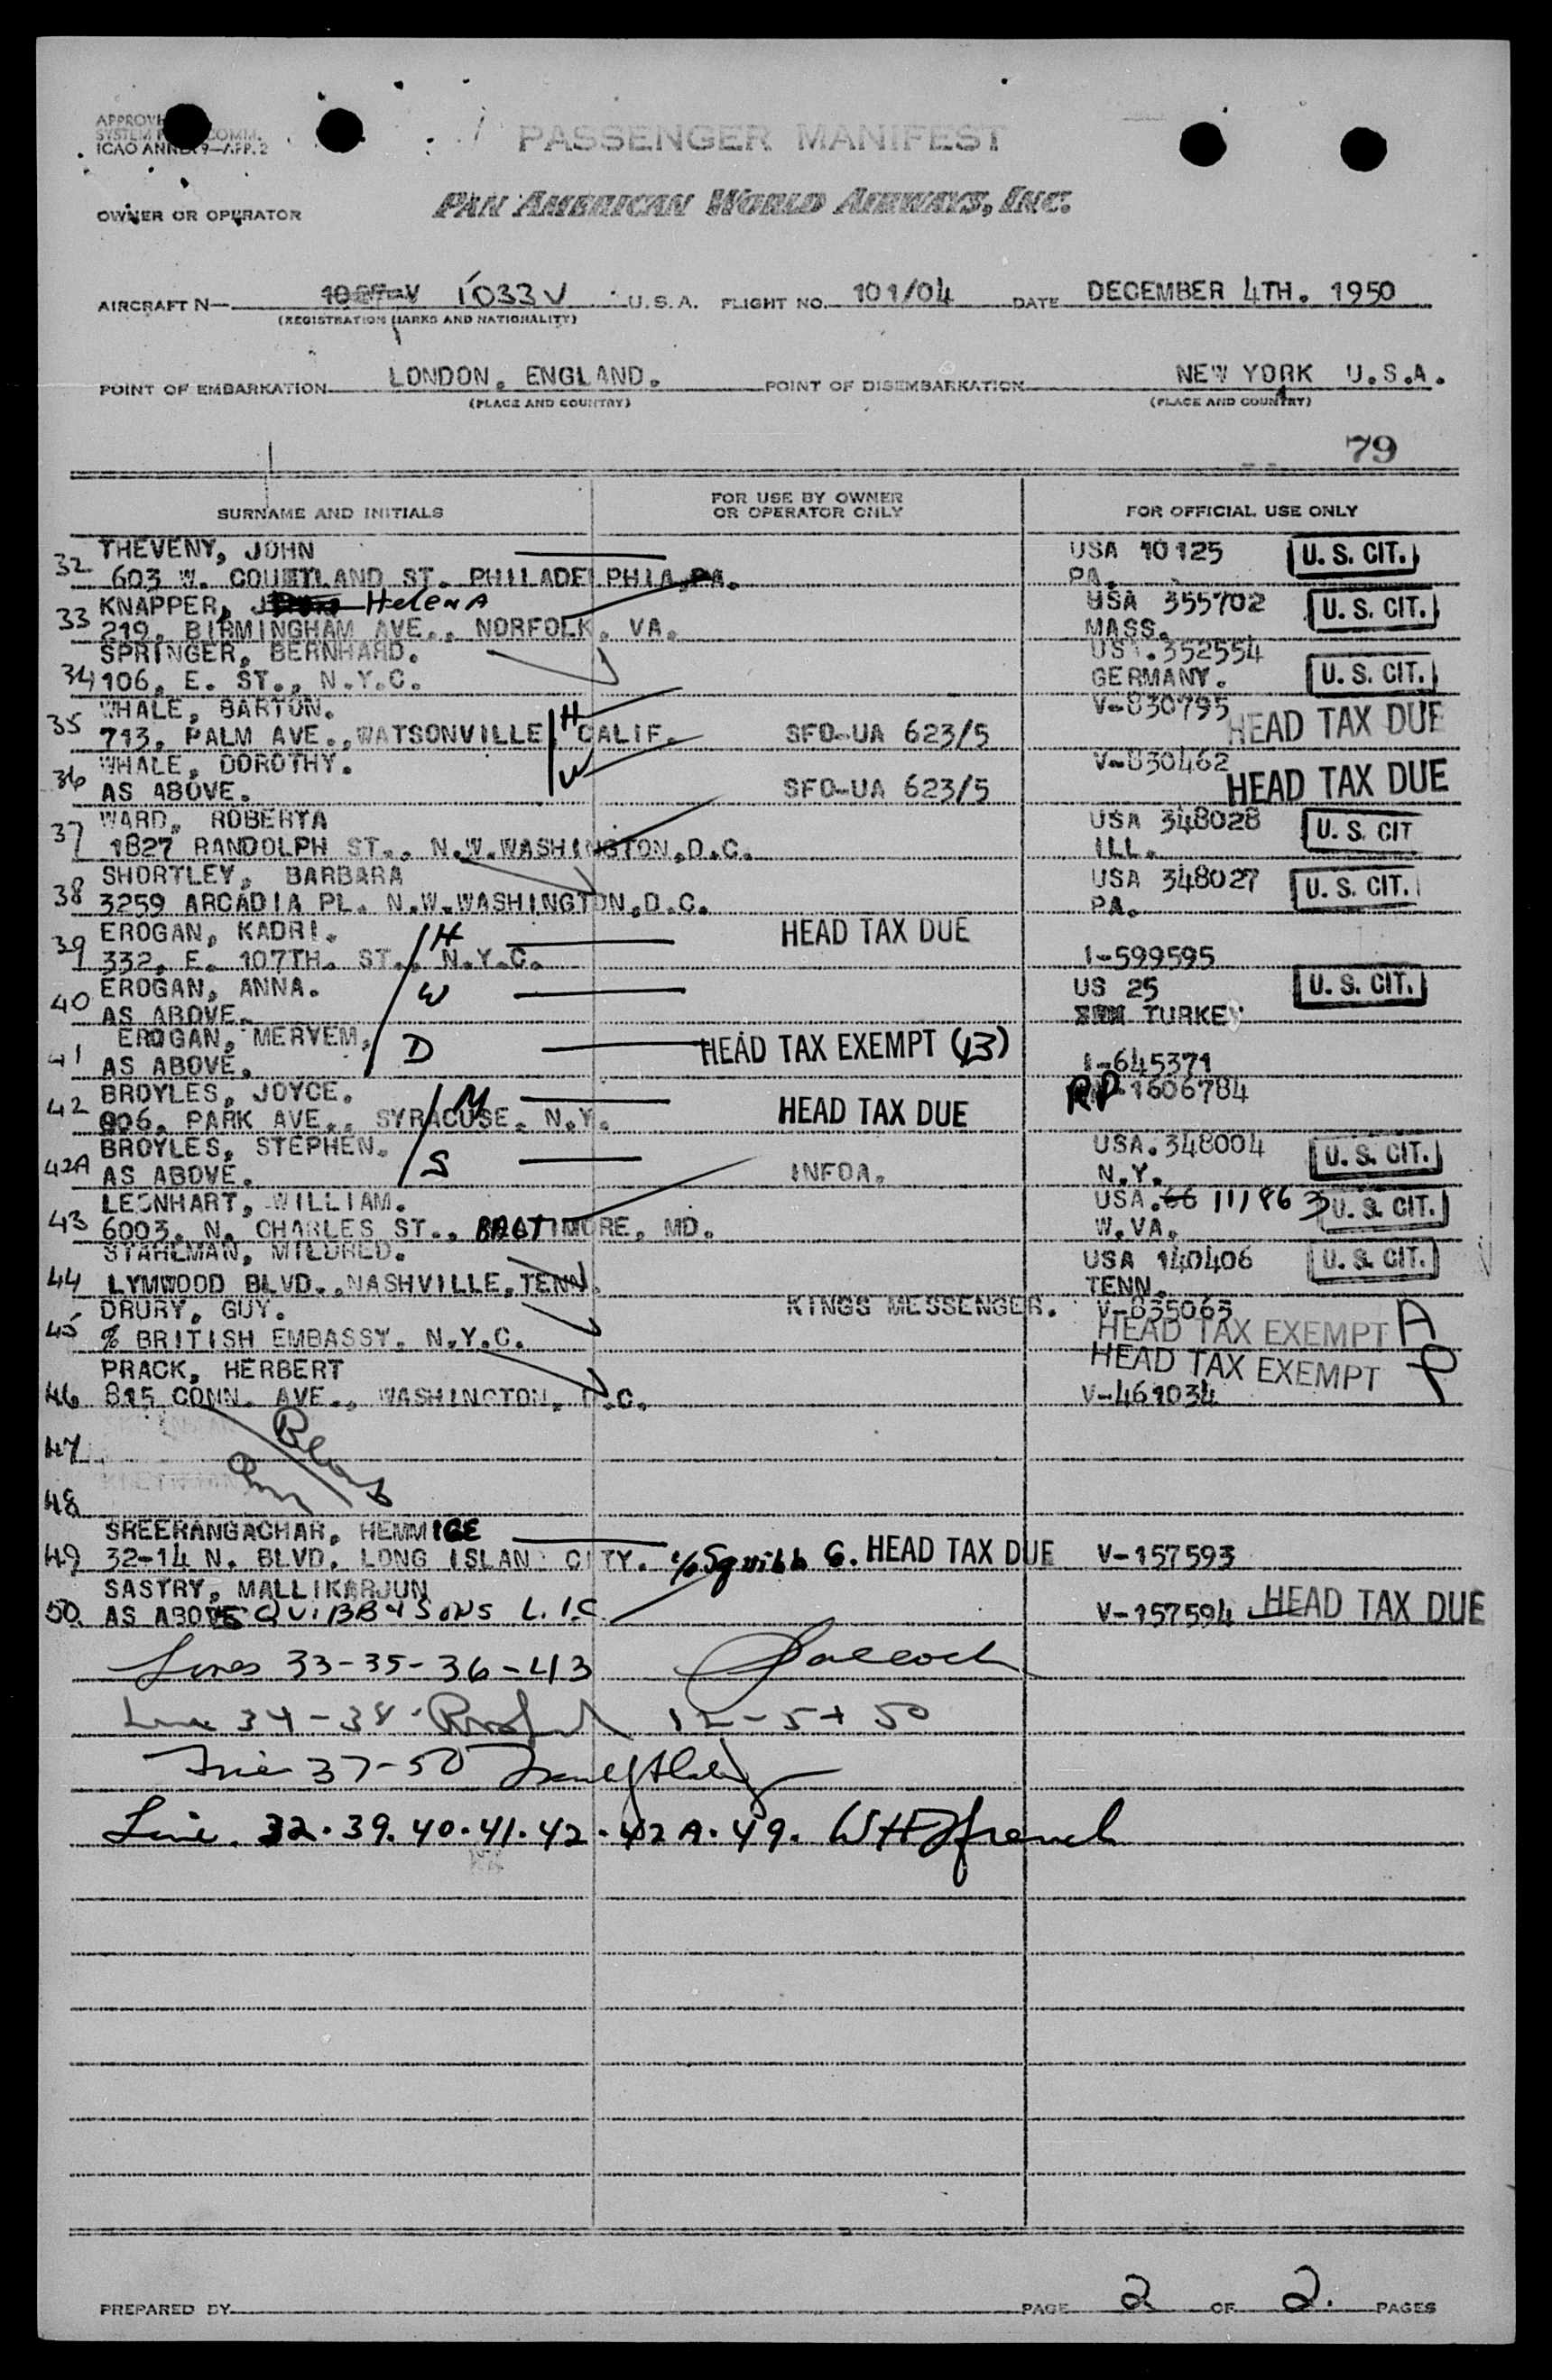 PASSENGER MANIFEST
SYSTEM COMM.
ICAO ANNEX 9—APP. 2
OWNER OR OPERATOR PAN AMERICAN WORLD AIRWAYS, INC.
AIRCRAFT N— 1033V U.S.A. FLIGHT NO. 101/04 DATE DECEMBER 4TH. 1950
(REGISTRATION MARKS AND NATIONALITY)
POINT OF EMBARKATION LONDON. ENGLAND. POINT OF DISEMBARKATION NEW YORK U.S.A.
(PLACE AND COUNTRY) (PLACE AND COUNTRY)
79
SURNAME AND INITIALS FOR USE BY OWNER OR OPERATOR ONLY FOR OFFICIAL USE ONLY
THEVENY, JOHN USA 10125 U. S. CIT.
32 603 W. ST. PHILADELPHIA, PA. PA.
KNAPPER, HELENA USA 355702 U. S. CIT.
33 219, BIRMINGHAM AVE., NORFOLK. VA. MASS.
SPRINGER, BERNHARD. USA.352554
34 106, E. ST., N.Y.C. GERMANY. U. S. CIT.
WHALE, BARTON. H V-830795 HEAD TAX DUE
35 713, PALM AVE., WATSONVILLE, CALIF. SFO-UA 623/5
WHALE, DOROTHY. W V-830462
36 AS ABOVE. SFO-UA 623/5 HEAD TAX DUE
WARD, ROBERTA USA 348028 U. S. CIT
37 1827 RANDOLPH ST., N.W.WASHINGTON,D.C. ILL.
SHORTLEY, BARBARA USA 348027 U. S. CIT.
38 3259 ARCADIA PL. N.W.WASHINGTON,D.C. PA.
EROGAN, KADRI. H HEAD TAX DUE
39 332, E. 107TH. ST., N.Y.C. I-599595
EROGAN, ANNA. W US 25 U. S. CIT.
40 AS ABOVE. TURKEY
EROGAN, MERYEM, D HEAD TAX EXEMPT (13)
41 AS ABOVE. I-645371
BROYLES, JOYCE. M RP 1606784
42 906, PARK AVE., SYRACUSE. N.Y. HEAD TAX DUE
BROYLES, STEPHEN. S USA.348004 U. S. CIT.
42A AS ABOVE. INFOA. N.Y.
LEONHART, WILLIAM. USA.66 111863 U. S. CIT.
43 6003, N. CHARLES ST., BALTIMORE, MD. W.VA.
STAHLMAN, MILDRED. USA 140406 U. S. CIT.
44 LYMWOOD BLVD.,NASHVILLE,TENN. TENN.
DRURY, GUY. KINGS MESSENGER. V-835063
45 % BRITISH EMBASSY. N.Y.C. HEAD TAX EXEMPT A
PRACK, HERBERT HEAD TAX EXEMPT
46 815 CONN. AVE., WASHINGTON, D.C. V-461034
47
48
SREERANGACHAR, HEMMIGE
49 32-14 N. BLVD. LONG ISLAND CITY. c/o Squibb HEAD TAX DUE V-157593
SASTRY, MALLIKARJUN
50 AS ABOVE SQUIBB & SONS L.I.C. V-157594 HEAD TAX DUE
Lines 33-35-36-43
Line 34-38 12-5-50
Line 37-50
Line. 32.39.40.41.42.42A.49. WH French
PREPARED BY PAGE 2 OF 2. PAGES